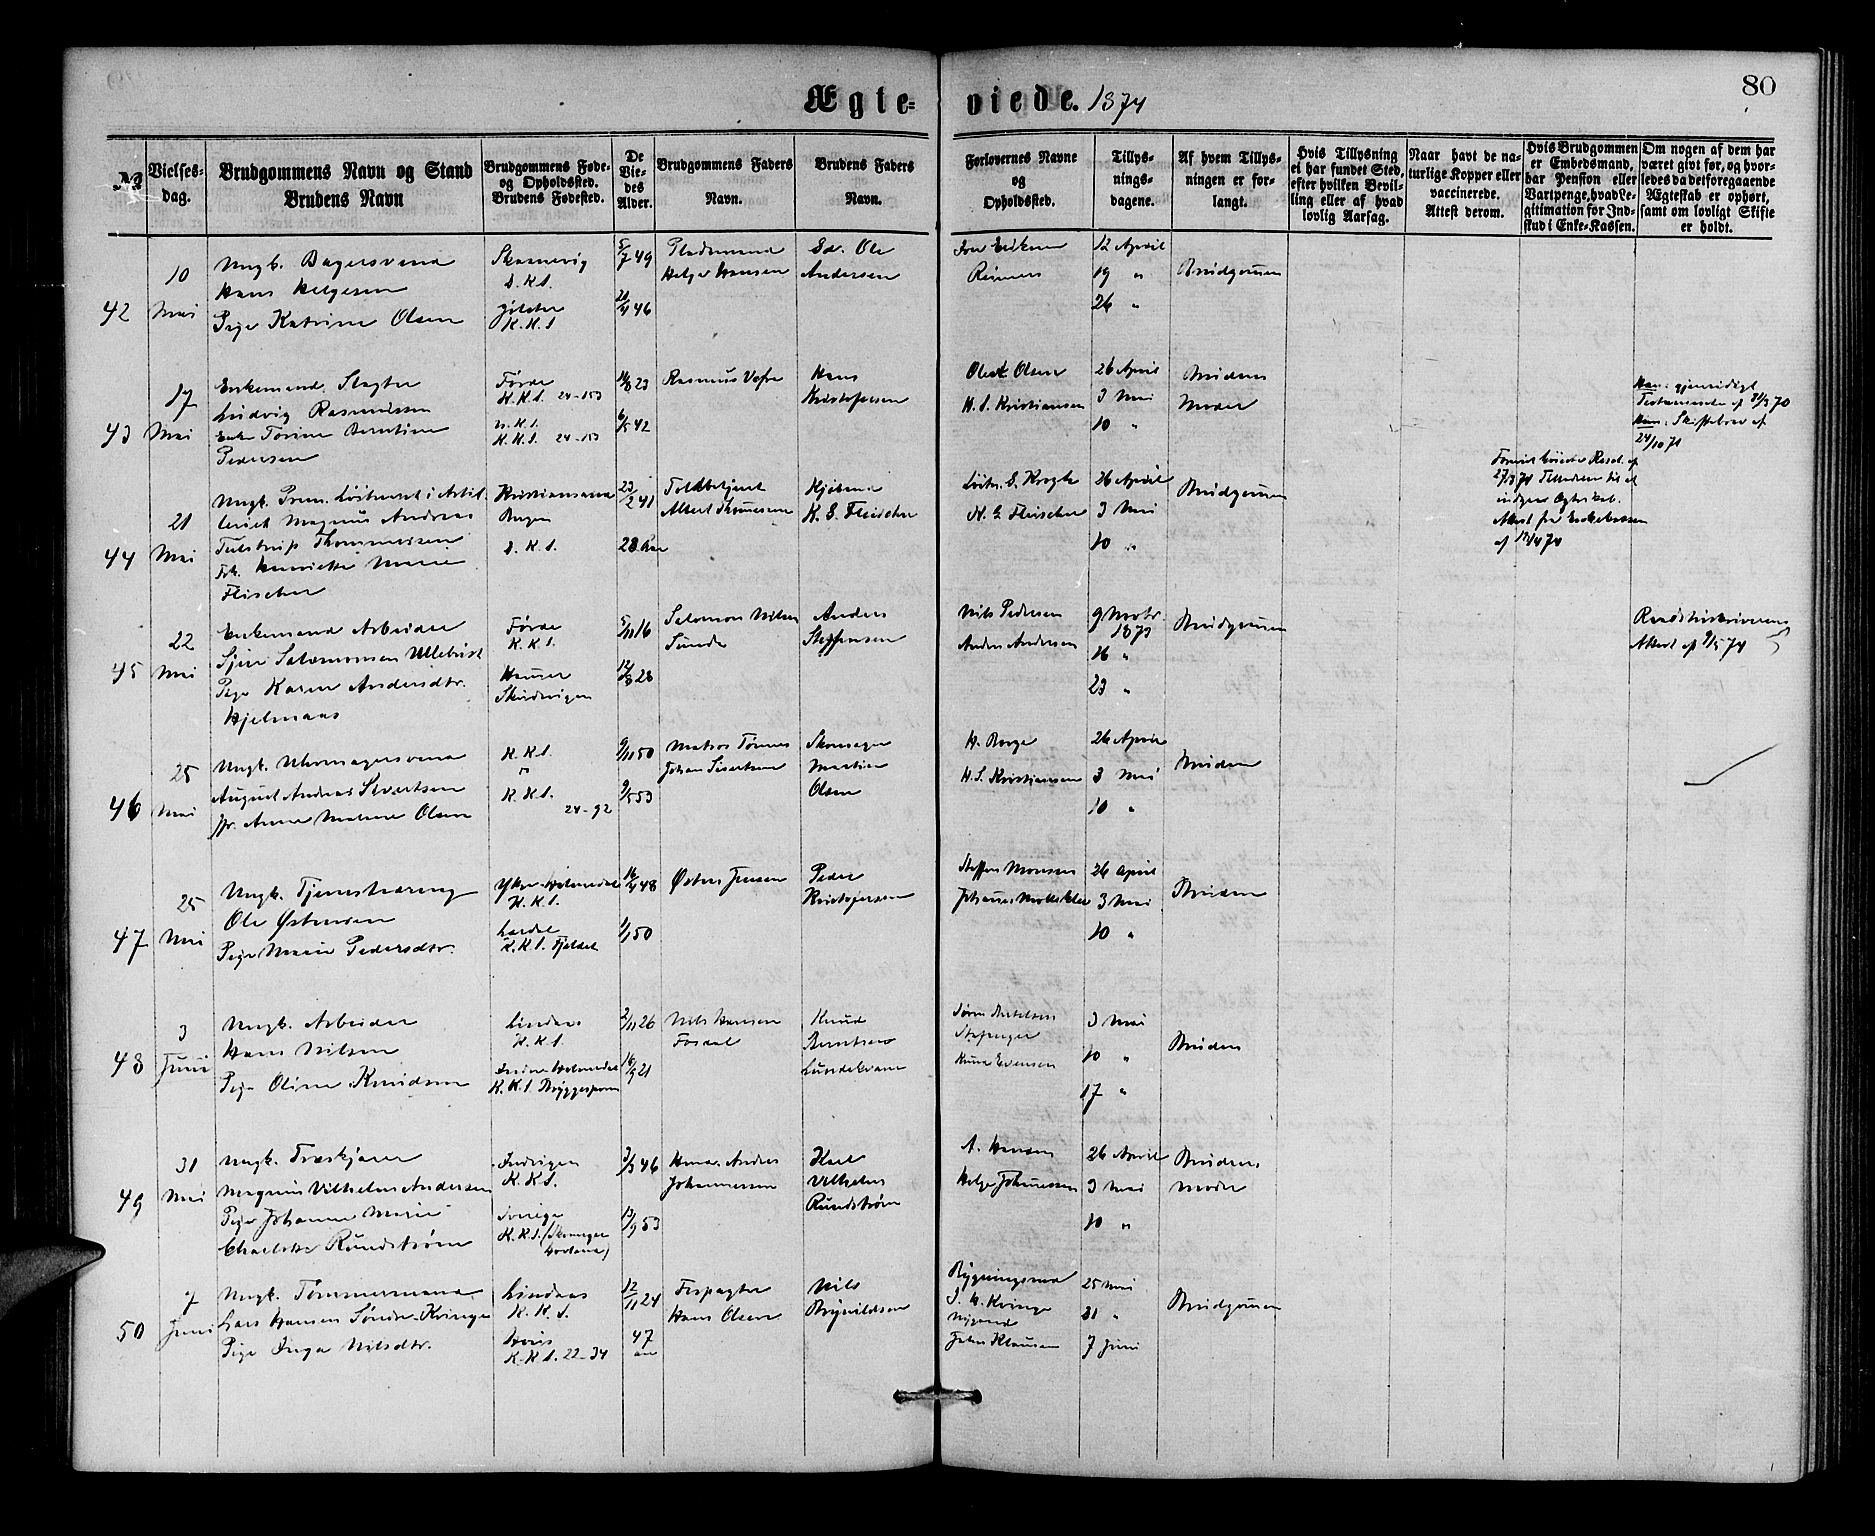 80
Ægte= viede. 1874
No
Vielses-dag.
Brudgommens Navn og Stand
Brudens Navn
Brudgommens Føde- og Opholdssted.
Brudens Fødested.
De Vie-des Alder.
Brudgommens Faders Navn.
Brudens Faders Navn.
Forlovernes Navne og Opholdssted.
Tillys-nings-dagene.
Af hvem Tillys-ningen er for-langt.
Hvis Tillysning ei har fundet Sted, efter hvilken Bevil-ling eller af hvad lovlig Aarsag.
Naar havt de na-turlige Kopper eller vaccinerede. Attest derom.
Hvis Brudgommen er Embedsmand, har Pension eller Vartpenge, hvad Le-gitimation for Ind-skud i Enke-Kassen.
Om nogen af dem har været givt før, og hvor-ledes da det foregaaende Ægteskab er ophørt, samt om lovligt Skifte er holdt.
42
10 Mai
Ungk. Bagersvend
Hans Helgesen
Pige Katrine Olsen
Skaanevig
D. K. S.
Jølster
K. K. S.
5/7 49
46
Pladsmand
Helge Hansen
Sd. Ole
Andersen
Iver Eriksen
12 April
19 "
26 "
Brudgommen
43
17 Mai
Enkemand Slagter
Ludvig Rasmussen
Enke Torine Berntine
Pedersen
Førde
K. K. S. 24-153
N. K. S.
K. K. S. 24-153
23
6/5 42
Rasmus
Hans
Kristofersen
Olsen
H. S. Kristiansen
26 April
3 Mai
10 "
Brudens
Moder
Ham: gjensidigt
Testamente af 31/3 70
Ham: Skiftebrev af
24/10 71
44
21 Mai
Ungk. Prem. Løitenant i Artil-
leriet Magnus Andreas
Tulstrup Thommesen
Frk. Henriette Marie
Fleischer
Kristiansand
Bergen
D. K. S.
23/2 41
28 Aar
Toldbetjent
Albert Thommesen
Kjøbmand
K. S. Fleischer
Løitn. S. Krogh
H. G. Fleischer
26 April
3 Mai
10 "
Brudgommen
27/3 74 Tilladelse til at
indgaa Ægteskab.
Attest fra Enkekassen
45
22 Mai
Enkemand Arbeider
Salomonsen Ullebust
Pige Karen Andersdtr.
Hjelmaas
Førde
K. K. S.
Hammer
5/11 16
12/8 28
Salomon Nilsen
Sunde
Anders
Steffensen
Nils Pedersen
Anders Andersen
9 Novbr.
1873
16 "
23 "
Brudgommen
Raadstueskriverens
Attest af 9/5 74
46
25 Mai
Ungk. Uhrmagersvend
August Andreas Sivertsen
Jfr. Anna Malene Olsen
K. K. S.
"
K. K. S.
24-92
9/11 50
9/5 53
Matros Tønnes
Johan Sivertsen
Skomager
Martin
Olsen
H. Berge
H. S. Kristiansen
26 April
3 Mai
10 "
Bruden
47
25 Mai
Ungk. Tjenestedreng
Ole Østensen
Pige Marie Pedersdtr.
Ytre Holmedal
K. K. S.
Lærdal
K. K. S. Fjeldet
16/4 48
1/1 50
Østen Jensen
Peder
Kristofersen
Steffen Monsen
Johannes
26 April
3 Mai
10 "
Bruden
48
3 Juni
Ungk. Arbeider
Hans Nilsen
Pige Oline Knudsen
Lindaas
K. K. S.
Indre Holmedal
K. K. S. Bryggesporen
2/11 26
16/9 21
Nils Hansen
Fosdal
Knud
Berntsen
Søren
Knud Evensen
3 Mai
10 "
17 "
Bruden
49
31 Mai
Ungk. Træskjærer
Magnus Vilhelm Andersen
Pige Johanne Marie
Charlotte Rundstrøm
Indvigen
K. K. S.
Sverige
K. K. S. (Skomager
3/3 46
13/9 53
Anders
Johannessen
Karl
Vilhelm
Rundstrøm
A. Hansen
Helge Johannessen
26 April
3 Mai
10 "
Brudens
Moder
50
7 Juni
Ungk. Tømmermand
Lars Hansen Søndre-Kvinge
Pige Inga Nilsdtr.
Lindaas
K. K. S.
Hovis
K. K. S. 22-34
12/11 24
47
aar
Forpagter
Hans Olsen
Nils
Brynildsen
Bygningsmd
J. H. Kvinge
Nygaard
Johan Klausen
25 Mai
31 "
7 Juni
Brudgommen